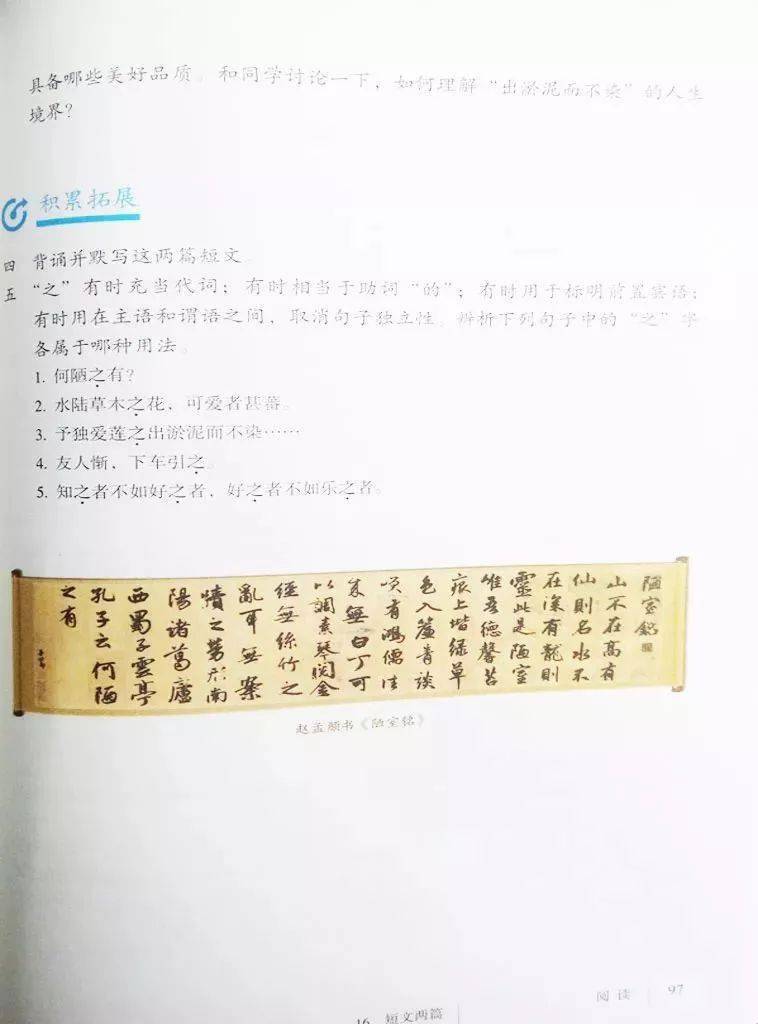 具备哪些美好品质。和同学讨论一下，如何理解“出淤泥而不染”的人生
境界？
积累拓展
四 背诵并默写这两篇短文。
五 “之”有时充当代词；有时相当于助词“的”；有时用于标明前置宾语；
有时用在主语和谓语之间，取消句子独立性。辨析下列句子中的“之”字
各属于哪种用法。
1. 何陋之有？
2. 水陆草木之花，可爱者甚蕃。
3. 予独爱莲之出淤泥而不染……
4. 友人惭，下车引之。
5. 知之者不如好之者，好之者不如乐之者。
陋室銘
山不在高有
仙則名水不
在深有龍則
靈此是陋室
惟吾德馨苔
痕上堦緑草
色入簾青談
笑有鴻儒往
來無白丁可
以調素琴閲金
經無絲竹之
亂耳無案
牘之勞形南
陽諸葛廬
西蜀子雲亭
孔子云何陋
之有
赵孟頫书《陋室铭》
阅读 97
16 短文两篇